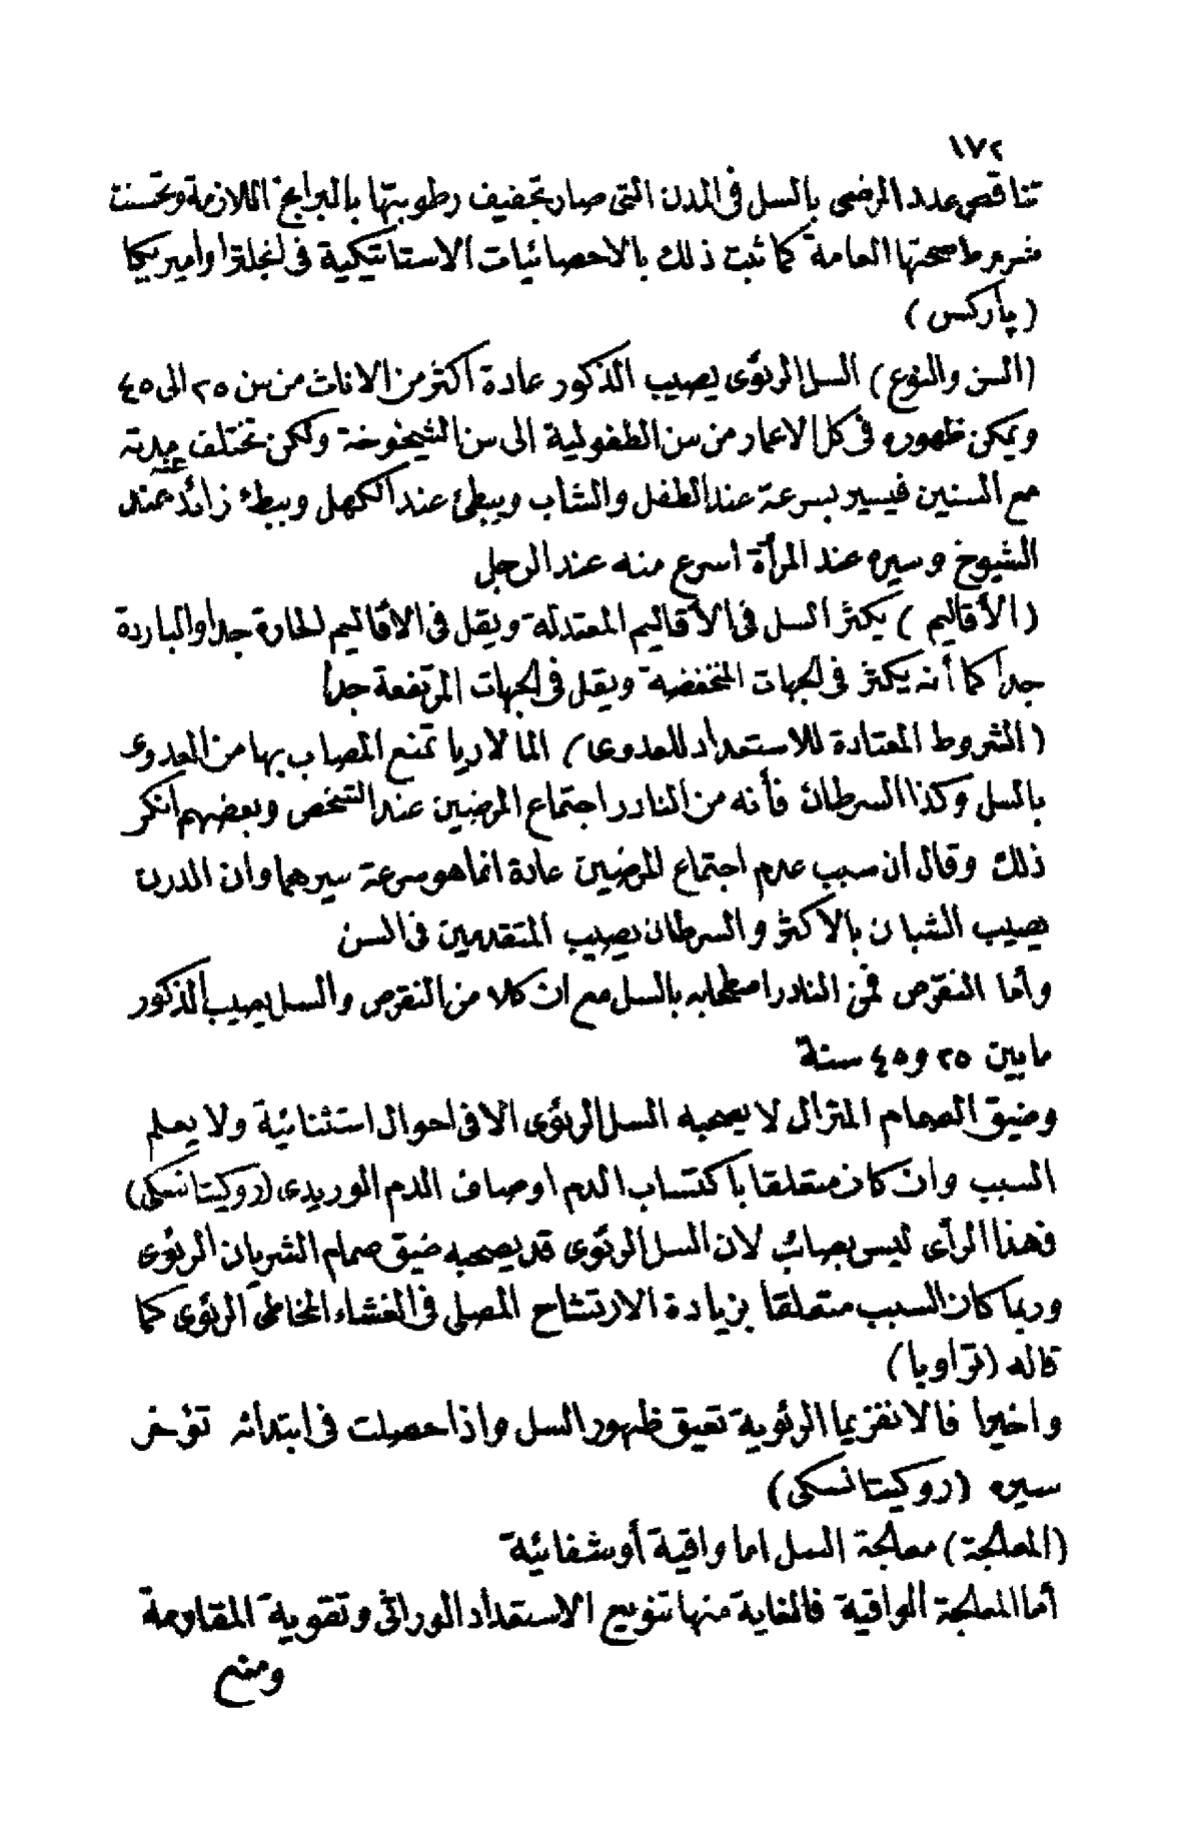 ١٧٢
تناقص عدد المرضى بالسل فى المدن التى صار تجفيف رطوبتها بالبرابخ اللازمة وتحسنت
شروط صحتها العامة كما ثبت ذلك بالاحصائيات الاستاتيكية فى انجلترا وأمريكا
(پاركس)
(السن والنوع) السل الرئوى يصيب الذكور عادة اكثر من الاناث من سن ٢٥ الى ٤٥
ويمكن ظهوره فى كل الاعمار من سن الطفولية الى سن الشيخوخة ولكن تختلف مدته
مع السنين فيسير بسرعة عند الطفل والشاب وببطئ عند الكهل وببطء زائد عند
الشيوخ وسيره عند المرأة اسرع منه عند الرجل
(الأقاليم) يكثر السل فى الأقاليم المعتدلة ويقل فى الأقاليم الحارة جدا والباردة
جدا كما أنه يكثر فى الجهات المنخفضة ويقل فى الجهات المرتفعة جدا
(الشروط المعتادة للاستعداد للعدوى) المالاريا تمنع المصاب بها من العدوى
بالسل وكذا السرطان فأنه من النادر اجتماع المرضين عند الشخص وبعضهم انكر
ذلك وقال ان سبب عدم اجتماع المرضين عادة انما هو سرعة سيرهما وان الدرن
يصيب الشبان بالاكثر والسرطان يصيب المتقدمين فى السن
وأما النقرص فمن النادر اصطحابه بالسل مع ان كلا من النقرص والسل يصيب الذكور
ما بين ٢٥ و٤٥ سنة
وضيق الصمام المترالى لا يصحبه السل الرئوى الا فى احوال استثنائية ولا يعلم
السبب وان كان متعلقا باكتساب الدم اوصاف الدم الوريدى (روكيتانسكى)
فهذا الرأى ليس بصائب لان السل الرئوى قد يصحبه ضيق صمام الشريان الرئوى
وربما كان السبب متعلقا بزيادة الارتشاح المصلى فى الغشاء المخاطى الرئوى كما
قاله (تراوبا)
واخيرا فالانفزيما الرئوية تعيق ظهور السل واذا حصلت فى ابتدائه تؤخر
سيره (روكيتانسكى)
(المعالجة) معالجة السل اما واقية أو شفائية
أما المعالجة الواقية فالغاية منها تنويع الاستعداد الوراثى وتقوية المقاومة
ومنع